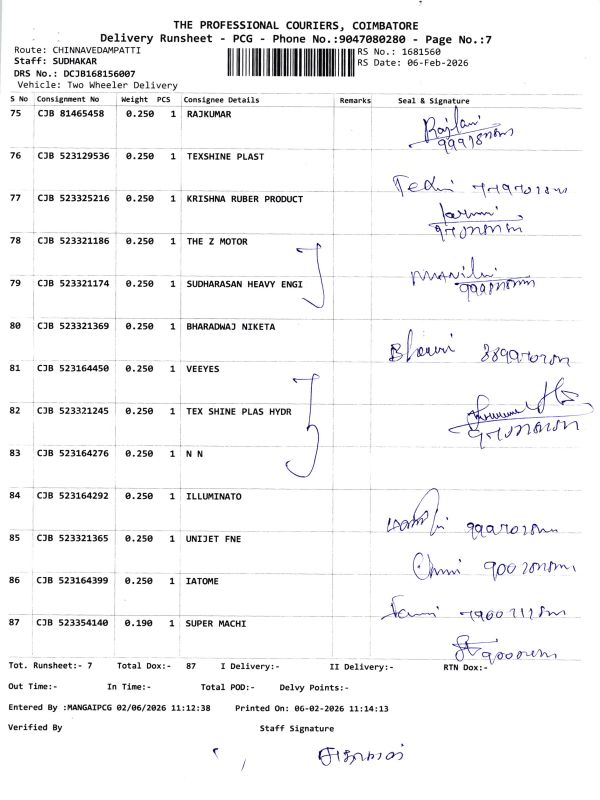 THE PROFESSIONAL COURIERS, COIMBATORE
Delivery Runsheet - PCG - Phone No.:9047080280 - Page No.:7
Route: CHINNAVEDAMPATTI RS No.: 1681560
Staff: SUDHAKAR RS Date: 06-Feb-2026
DRS No.: DCJB168156007
Vehicle: Two Wheeler Delivery
S No Consignment No Weight PCS Consignee Details Remarks Seal & Signature
75 CJB 81465458 0.250 1 RAJKUMAR
76 CJB 523129536 0.250 1 TEXSHINE PLAST
77 CJB 523325216 0.250 1 KRISHNA RUBER PRODUCT
78 CJB 523321186 0.250 1 THE Z MOTOR
79 CJB 523321174 0.250 1 SUDHARASAN HEAVY ENGI
80 CJB 523321369 0.250 1 BHARADWAJ NIKETA
81 CJB 523164450 0.250 1 VEEYES
82 CJB 523321245 0.250 1 TEX SHINE PLAS HYDR
83 CJB 523164276 0.250 1 N N
84 CJB 523164292 0.250 1 ILLUMINATO
85 CJB 523321365 0.250 1 UNIJET FNE
86 CJB 523164399 0.250 1 IATOME
87 CJB 523354140 0.190 1 SUPER MACHI
Tot. Runsheet:- 7 Total Dox:- 87 I Delivery:- II Delivery:- RTN Dox:-
Out Time:- In Time:- Total POD:- Delvy Points:-
Entered By :MANGAIPCG 02/06/2026 11:12:38 Printed On: 06-02-2026 11:14:13
Verified By Staff Signature